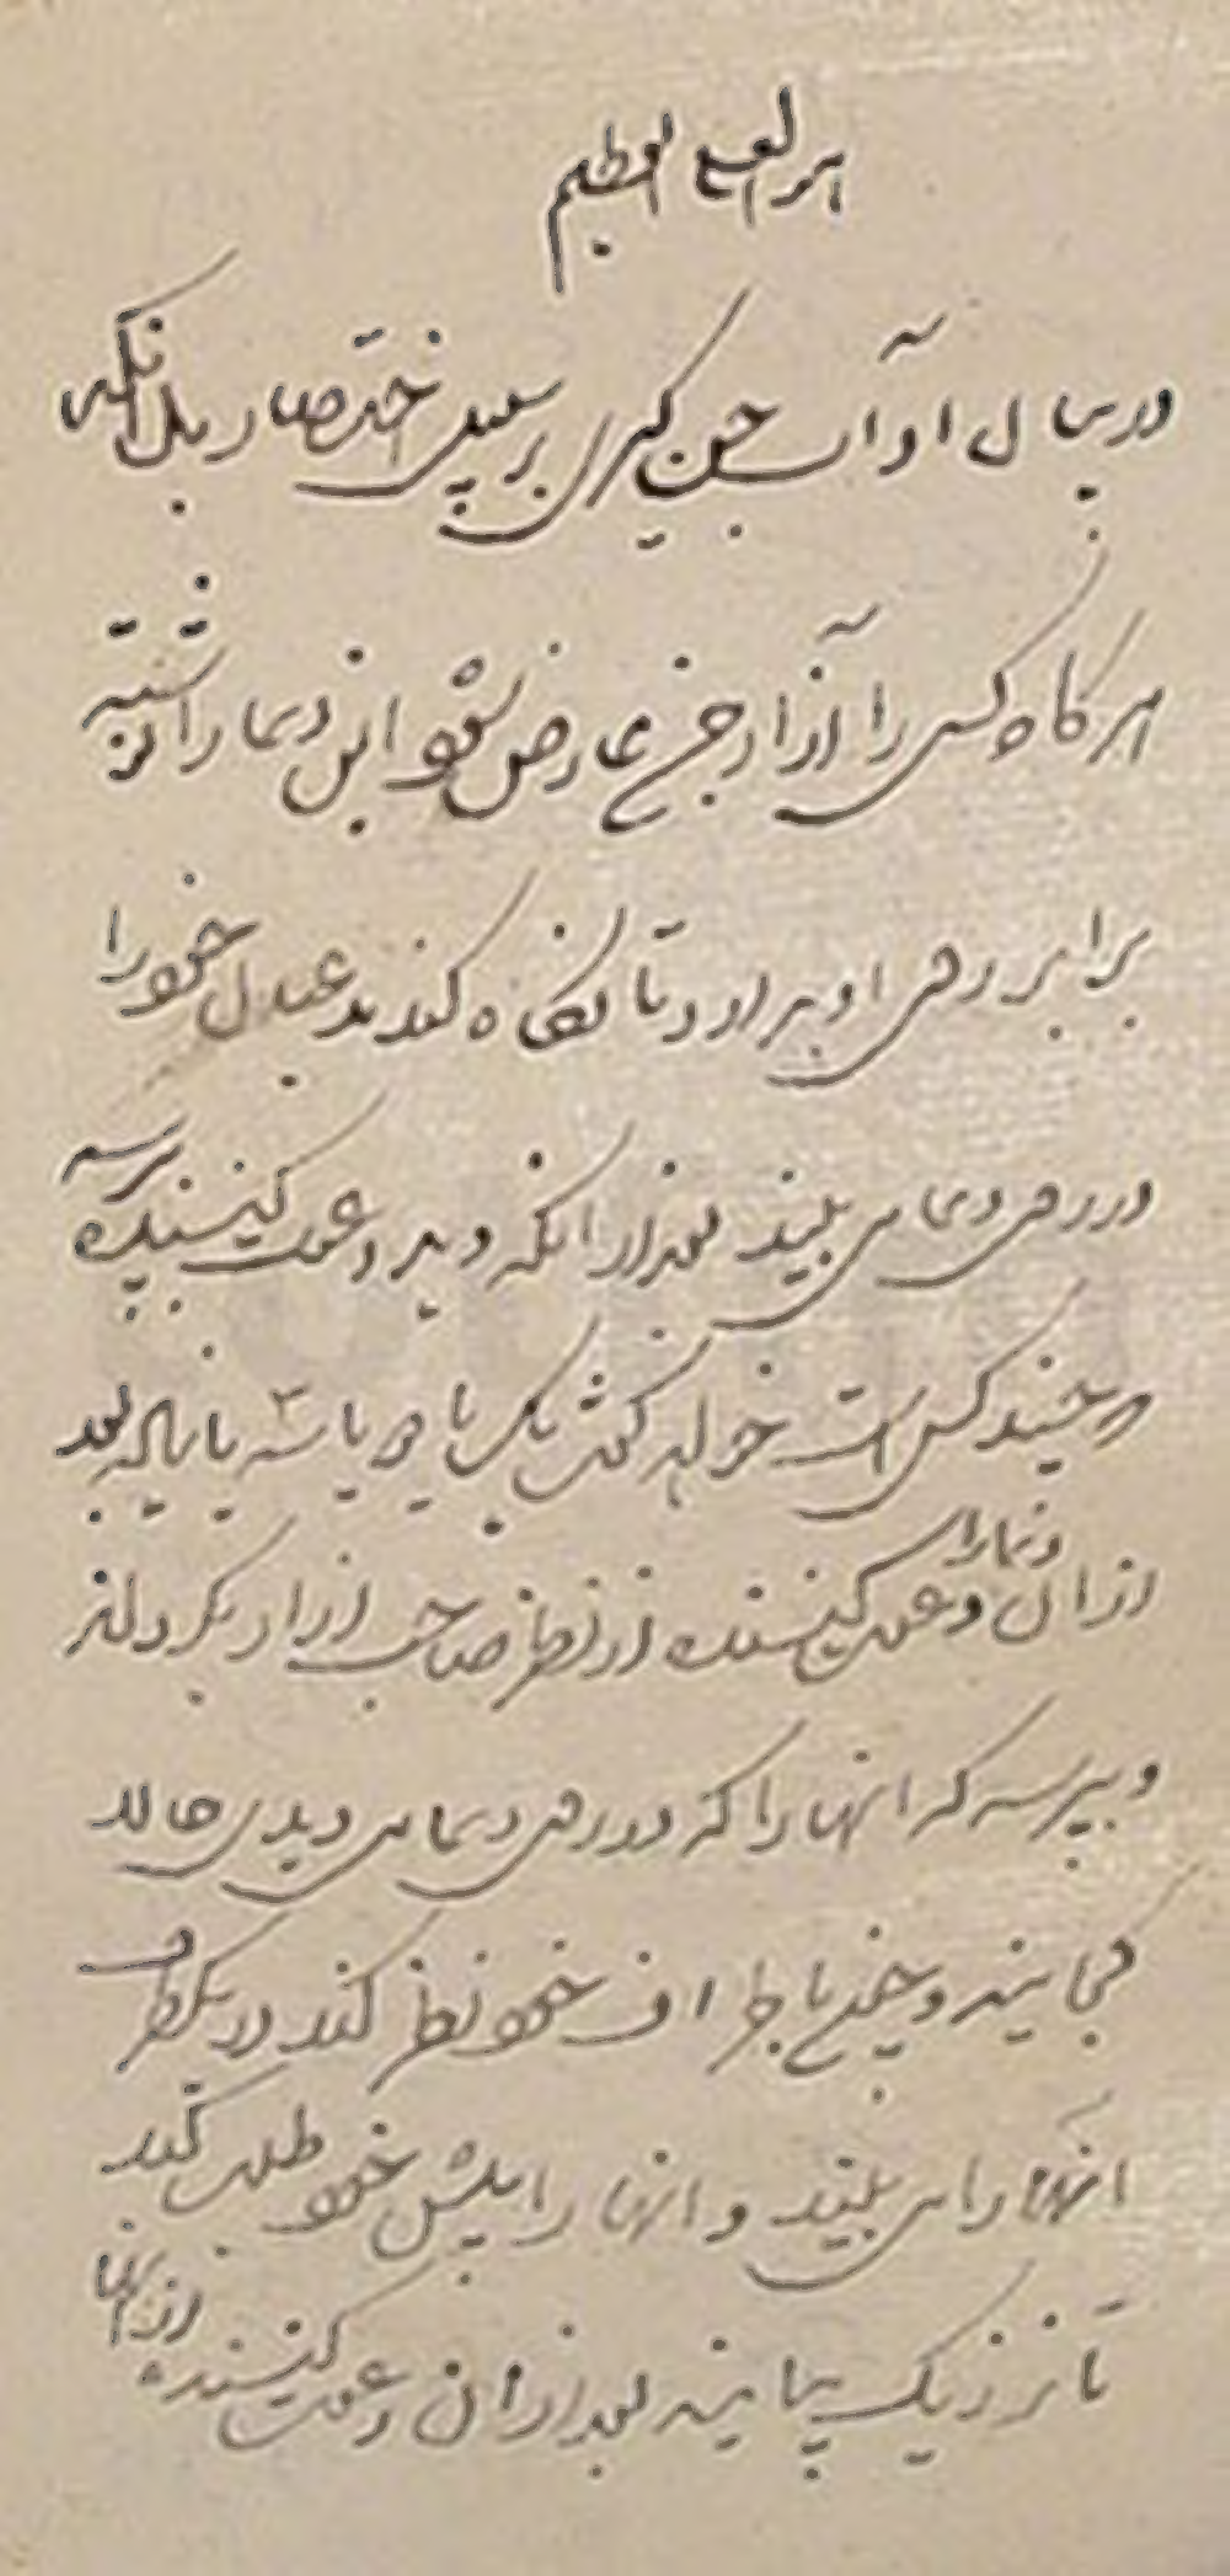 العلی العظیم
در بیان اداب جن گیری بر سبیل اختصار بدانکه
هرگاه کسی را آزار جنی عارض شود این دعا را نوشته
برابر روی او بدارد تا نگاه کند بعد خود را
در روی دعا می بیند بعد از آنکه دید دعوت کننده پرسد
و چند کس است خواهد گفت یک یا دو یا سه یا بعد
از ان دعا را دعوت کننده از نظر صاحب ازار دارد
و بپرسد که انها را که در روی دعا می دیدی حالا
کجایند و خود نظر کند در یکطرف
انها را می بیند و انها را پیش خود طلب کند
تا نزدیک بیایند بعد از ان دعوت کننده از انها